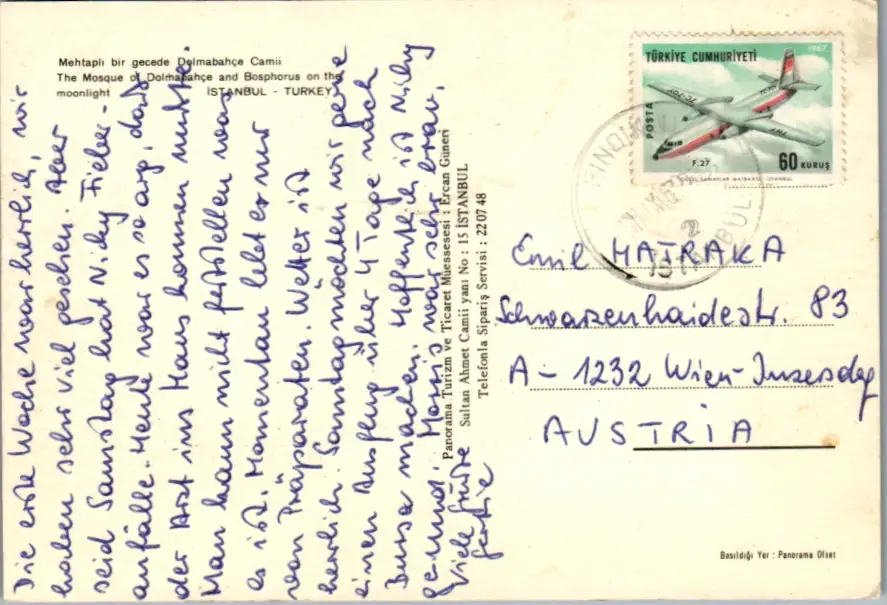 Mehtaplı bir gecede Dolmabahçe Camii
The Mosque of Dolmabahçe and Bosphorus on the
moonlight İSTANBUL - TURKEY
Die erste Woche war herrlich, wir
haben sehr viel gesehen. Aber
seid Samstag hat Nicky Fieber-
anfälle. Heute war es so arg, daß
der Arzt ins Haus kommen mußte.
Man kann nicht feststellen was
es ist. Momentan lebt er nur
von Präparaten. Wetter ist
herrlich. Samstag möchten wir gerne
einen Ausflug über 4 Tage nach
Bursa machen. Hoffentlich ist Nicky
gesund. Morris war sehr brav.
Viele Grüße
Panorama Turizm ve Ticaret Müessesesi : Ercan Güneri
Sultan Ahmet Camii yanı No : 15 İSTANBUL
Telefonla Sipariş Servisi : 22 07 48
TÜRKİYE CUMHURİYETİ
1967
POSTA
TC-TOY
THY
F.27
60 KURUŞ
FINDIKLI
2
İSTANBUL
Emil MATRAKA
Schwarzenhaidestr. 83
A - 1232 Wien - Inzersdorf
AUSTRIA
Basıldığı Yer : Panorama Ofset